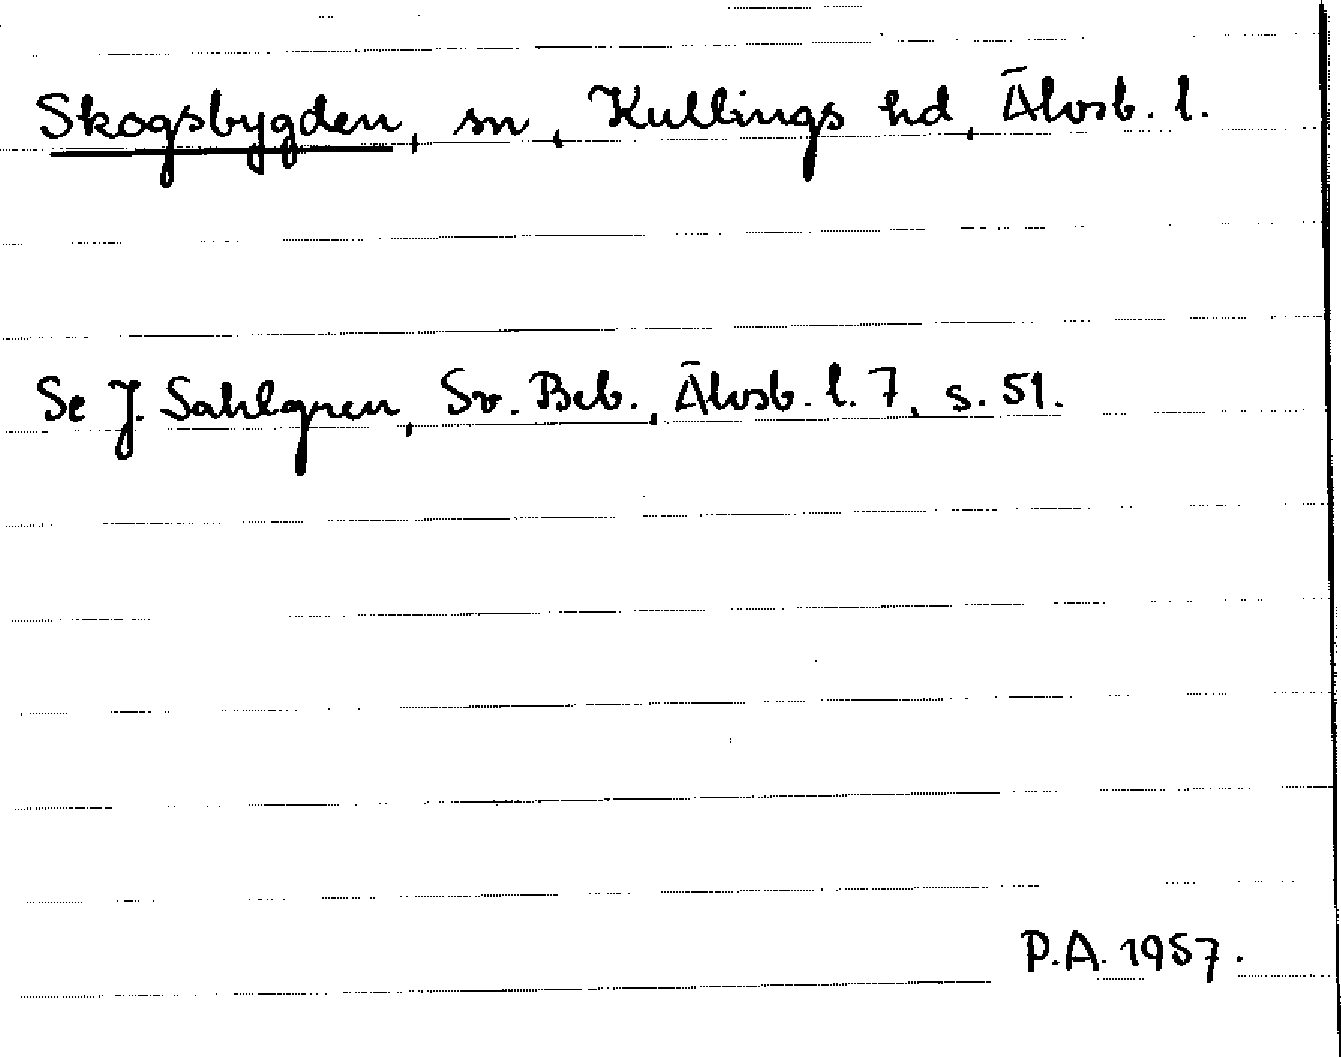 Skogsbygden, sn, Kullings hd, Älvsb. l.
Se J. Sahlgren, Sv. Beb., Älvsb. l. 7, s. 51.
P.A. 1957.